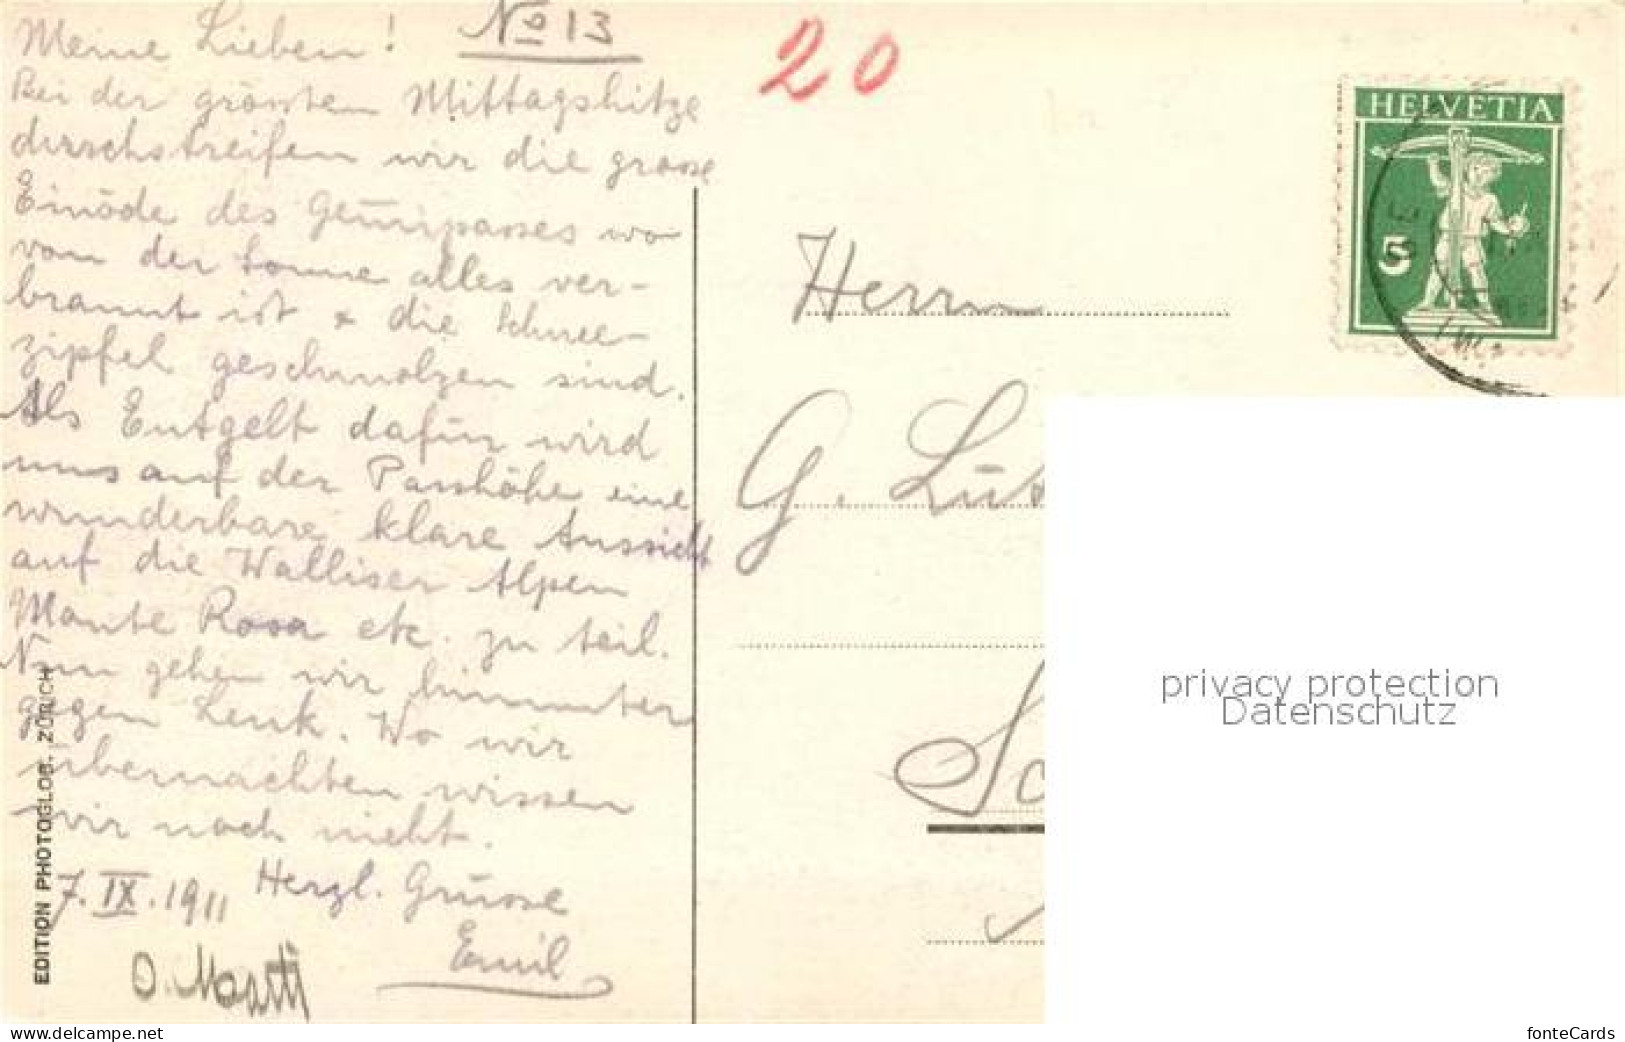 Meine Lieben! No 13
Bei der grössten Mittagshitze
durchstreifen wir die grosse
Einöde des Gemmipasses wo
von der Sonne alles ver-
brannt ist & die Schnee-
zipfel geschmolzen sind.
Als Entgelt dafür wird
uns auf der Passhöhe eine
wunderbare klare Aussicht
auf die Walliser Alpen
Monte Rosa etc. zu teil.
Nun gehen wir hinunter
gegen Leuk. Wo wir
übernachten wissen
wir noch nicht.
7.IX.1911 Herzl. Grüsse
Emil
O. Marti
EDITION PHOTOGLOB. ZÜRICH
20
HELVETIA
5
Herrn
G.
privacy protection
Datenschutz
www.delcampe.net
fonteCards